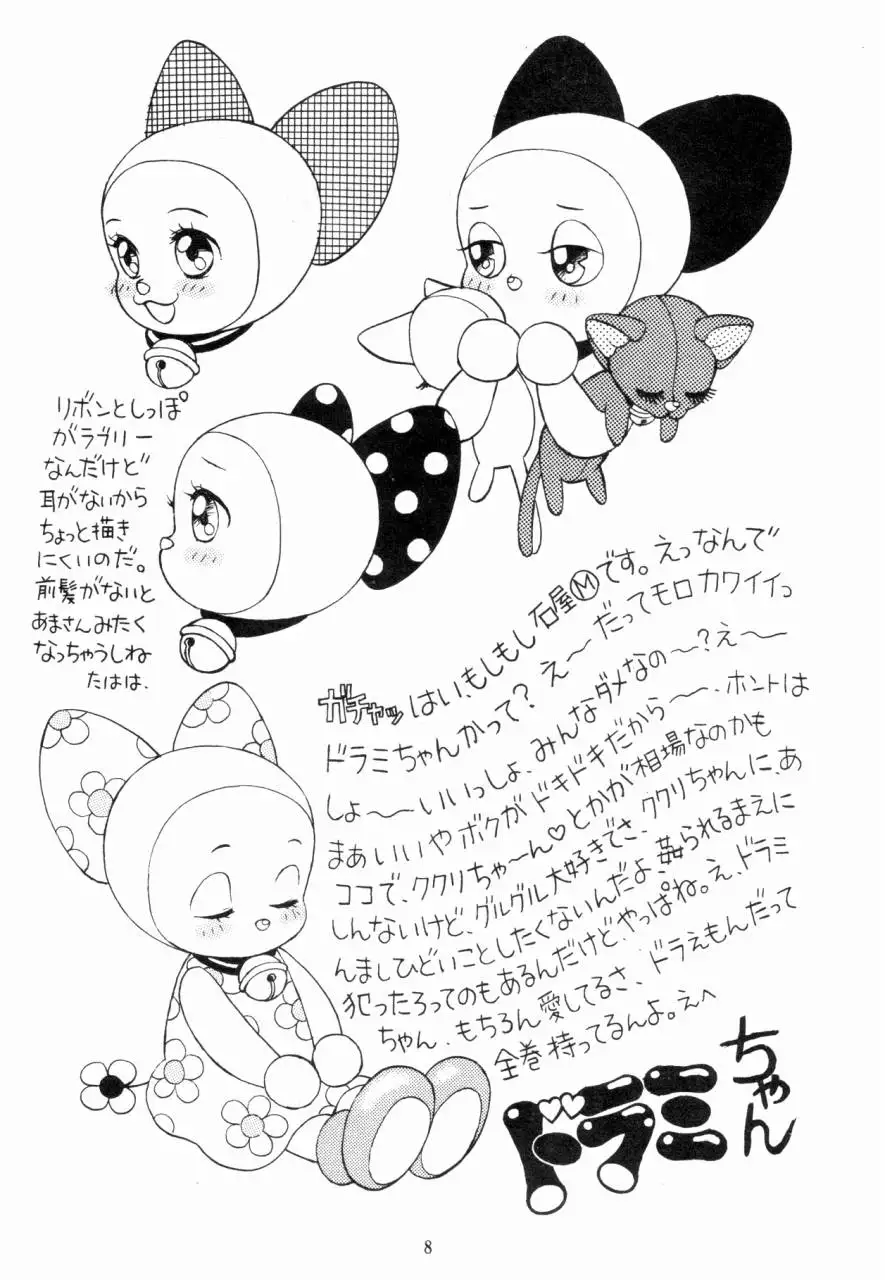 リボンとしっぽ
がラブリー
なんだけど
耳がないから
ちょっと描き
にくいのだ。
前髪がないと
あまさんみたく
なっちゃうしね
たはは、
ガチャッ はい、もしもし石屋Ⓜです。えっなんで
ドラミちゃんかって?え〜だってモロカワイイっ
しょ〜〜いいっしょ、みんなダメなの〜?え〜〜
まあいいやボクがドキドキだから〜〜、ホントは
ココで、ククリちゃ〜ん♡とかが相場なのかも
しんないけど、グルグル大好きでさ、ククリちゃんに、あ
んましひどいことしたくないんだよ、姦られるまえに
犯ったろってのもあるんだけど、やっぱね。え、ドラミ
ちゃん、もちろん愛してるさ、ドラえもんだって
全巻持ってるんよ。えへ
ドラミちゃん
8